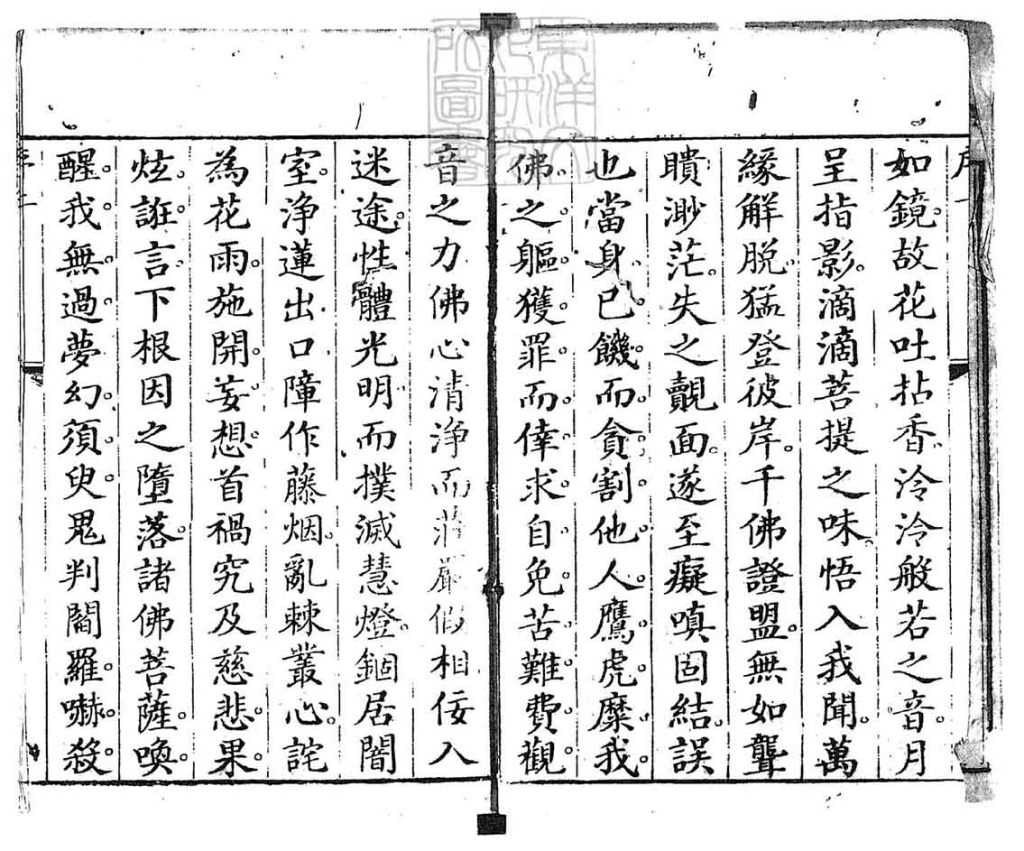 序一
如鏡。故花吐拈香。泠泠般若之音。月
呈指影。滴滴菩提之味。悟入我聞。萬
緣解脫。猛登彼岸。千佛證盟。無如聾
瞶渺茫。失之覿面。遂至癡嗔固結。誤
也當身已饑。而貪割他人。鷹虎糜我
佛。之軀。獲罪而倖求。自免苦難。費觀
音之力佛心清淨而莊嚴假相佞入
迷途。性體光明。而撲滅慧燈。錮居闇
室。淨蓮出口障作藤烟。亂棘叢心。詫
為花雨。施開。妄想。首禍究及慈悲。果。
炫。誑言。下根因之墮落。諸佛菩薩。喚。
醒。我。無。過。夢幻。須。臾。鬼判閻羅。嚇。殺